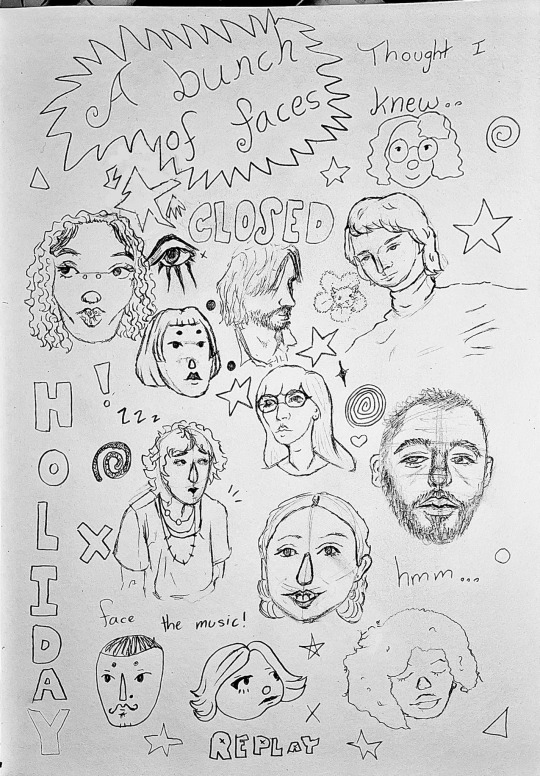 A bunch
of faces
Thought I
knew...
CLOSED
!
zzz
HOLIDAY
hmm...
face the music!
REPLAY